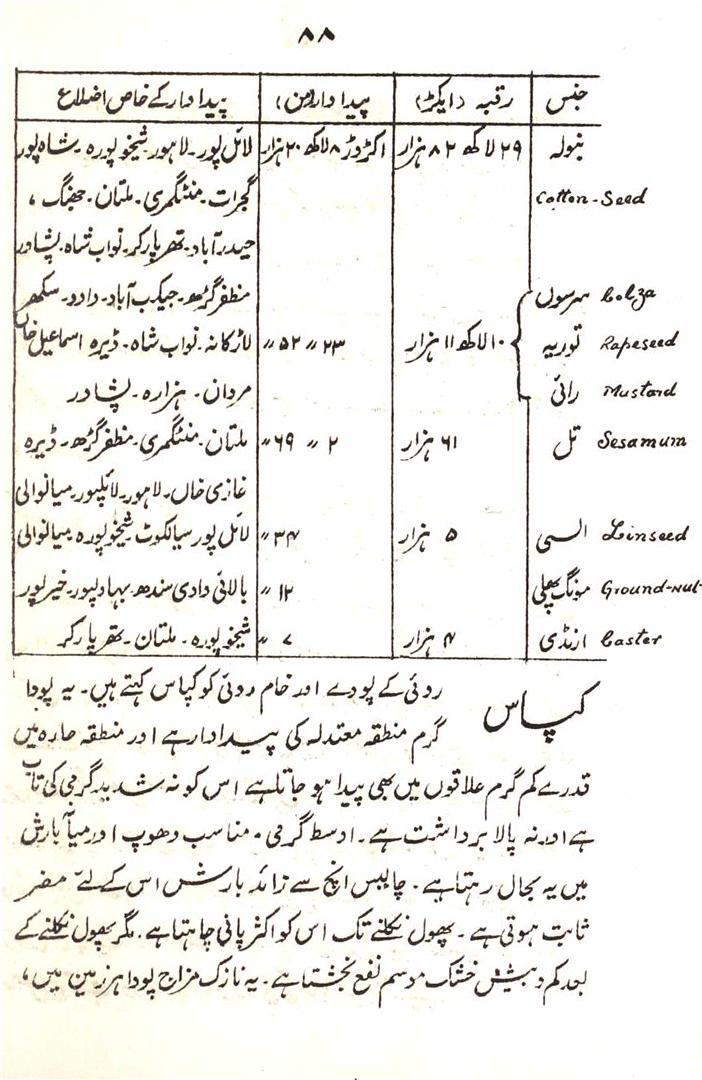 ۸۸
جنس رقبہ (ایکڑ) پیداوار (من) پیداوار کے خاص اضلاع
بنولہ ۲۹ لاکھ ۸۲ ہزار اکڑوڑ ۸ لاکھ ۲۰ ہزار لائل پور۔ لاہور شیخوپورہ۔ شاہ پور
Cotton-Seed گجرات۔ منٹگمری۔ ملتان۔ جھنگ ،
حیدرآباد۔ تھرپارکر۔ نواب شاہ۔ پشاور
سرسوں Colza مظفر گڑھ۔ جیکب آباد۔ دادو۔ سکھر
توریہ Rapeseed ۱۰ لاکھ ۱۱ ہزار ۲۳ ״ ۵۲ ״ لاڑکانہ۔ نواب شاہ۔ ڈیرہ اسماعیل خاں
رائی Mustard مردان۔ ہزارہ۔ پشاور
تل Sesamum ۶۱ ہزار ۲ ״ ۶۹ ״ ملتان۔ منٹگمری۔ مظفر گڑھ۔ ڈیرہ
غازی خاں۔ لاہور۔ لائلپور۔ میانوالی
السی Linseed ۵ ہزار ۳۴ ״ لائل پور سیالکوٹ شیخوپورہ میانوالی
مونگ پھلی Ground-nut- ۱۲ ״ بالائی وادی سندھ۔ بہاولپور۔ خیرپور
ارنڈی Caster ۴ ہزار ۷ ״ شیخوپورہ۔ ملتان۔ تھرپارکر
کپاس روئی کے پودے اور خام روئی کو کپاس کہتے ہیں۔ یہ پودا
گرم منطقہ معتدلہ کی پیداوار ہے اور منطقہ حارہ میں
قدرے کم گرم علاقوں میں بھی پیدا ہو جاتا ہے اس کو نہ شدید گرمی کی تاب
ہے اور نہ پالا برداشت ہے۔ اوسط گرمی۔ مناسب دھوپ اور میانہ بارش
میں یہ بحال رہتا ہے۔ چالیس انچ سے زائد بارش اس کے لئے مضر
ثابت ہوتی ہے۔ پھول نکلنے تک اس کو اکثر پانی چاہتا ہے۔ مگر پھول نکلنے کے
بعد کم و بیش خشک موسم نفع بخشتا ہے۔ یہ نازک مزاج پودا ہر زمین میں،